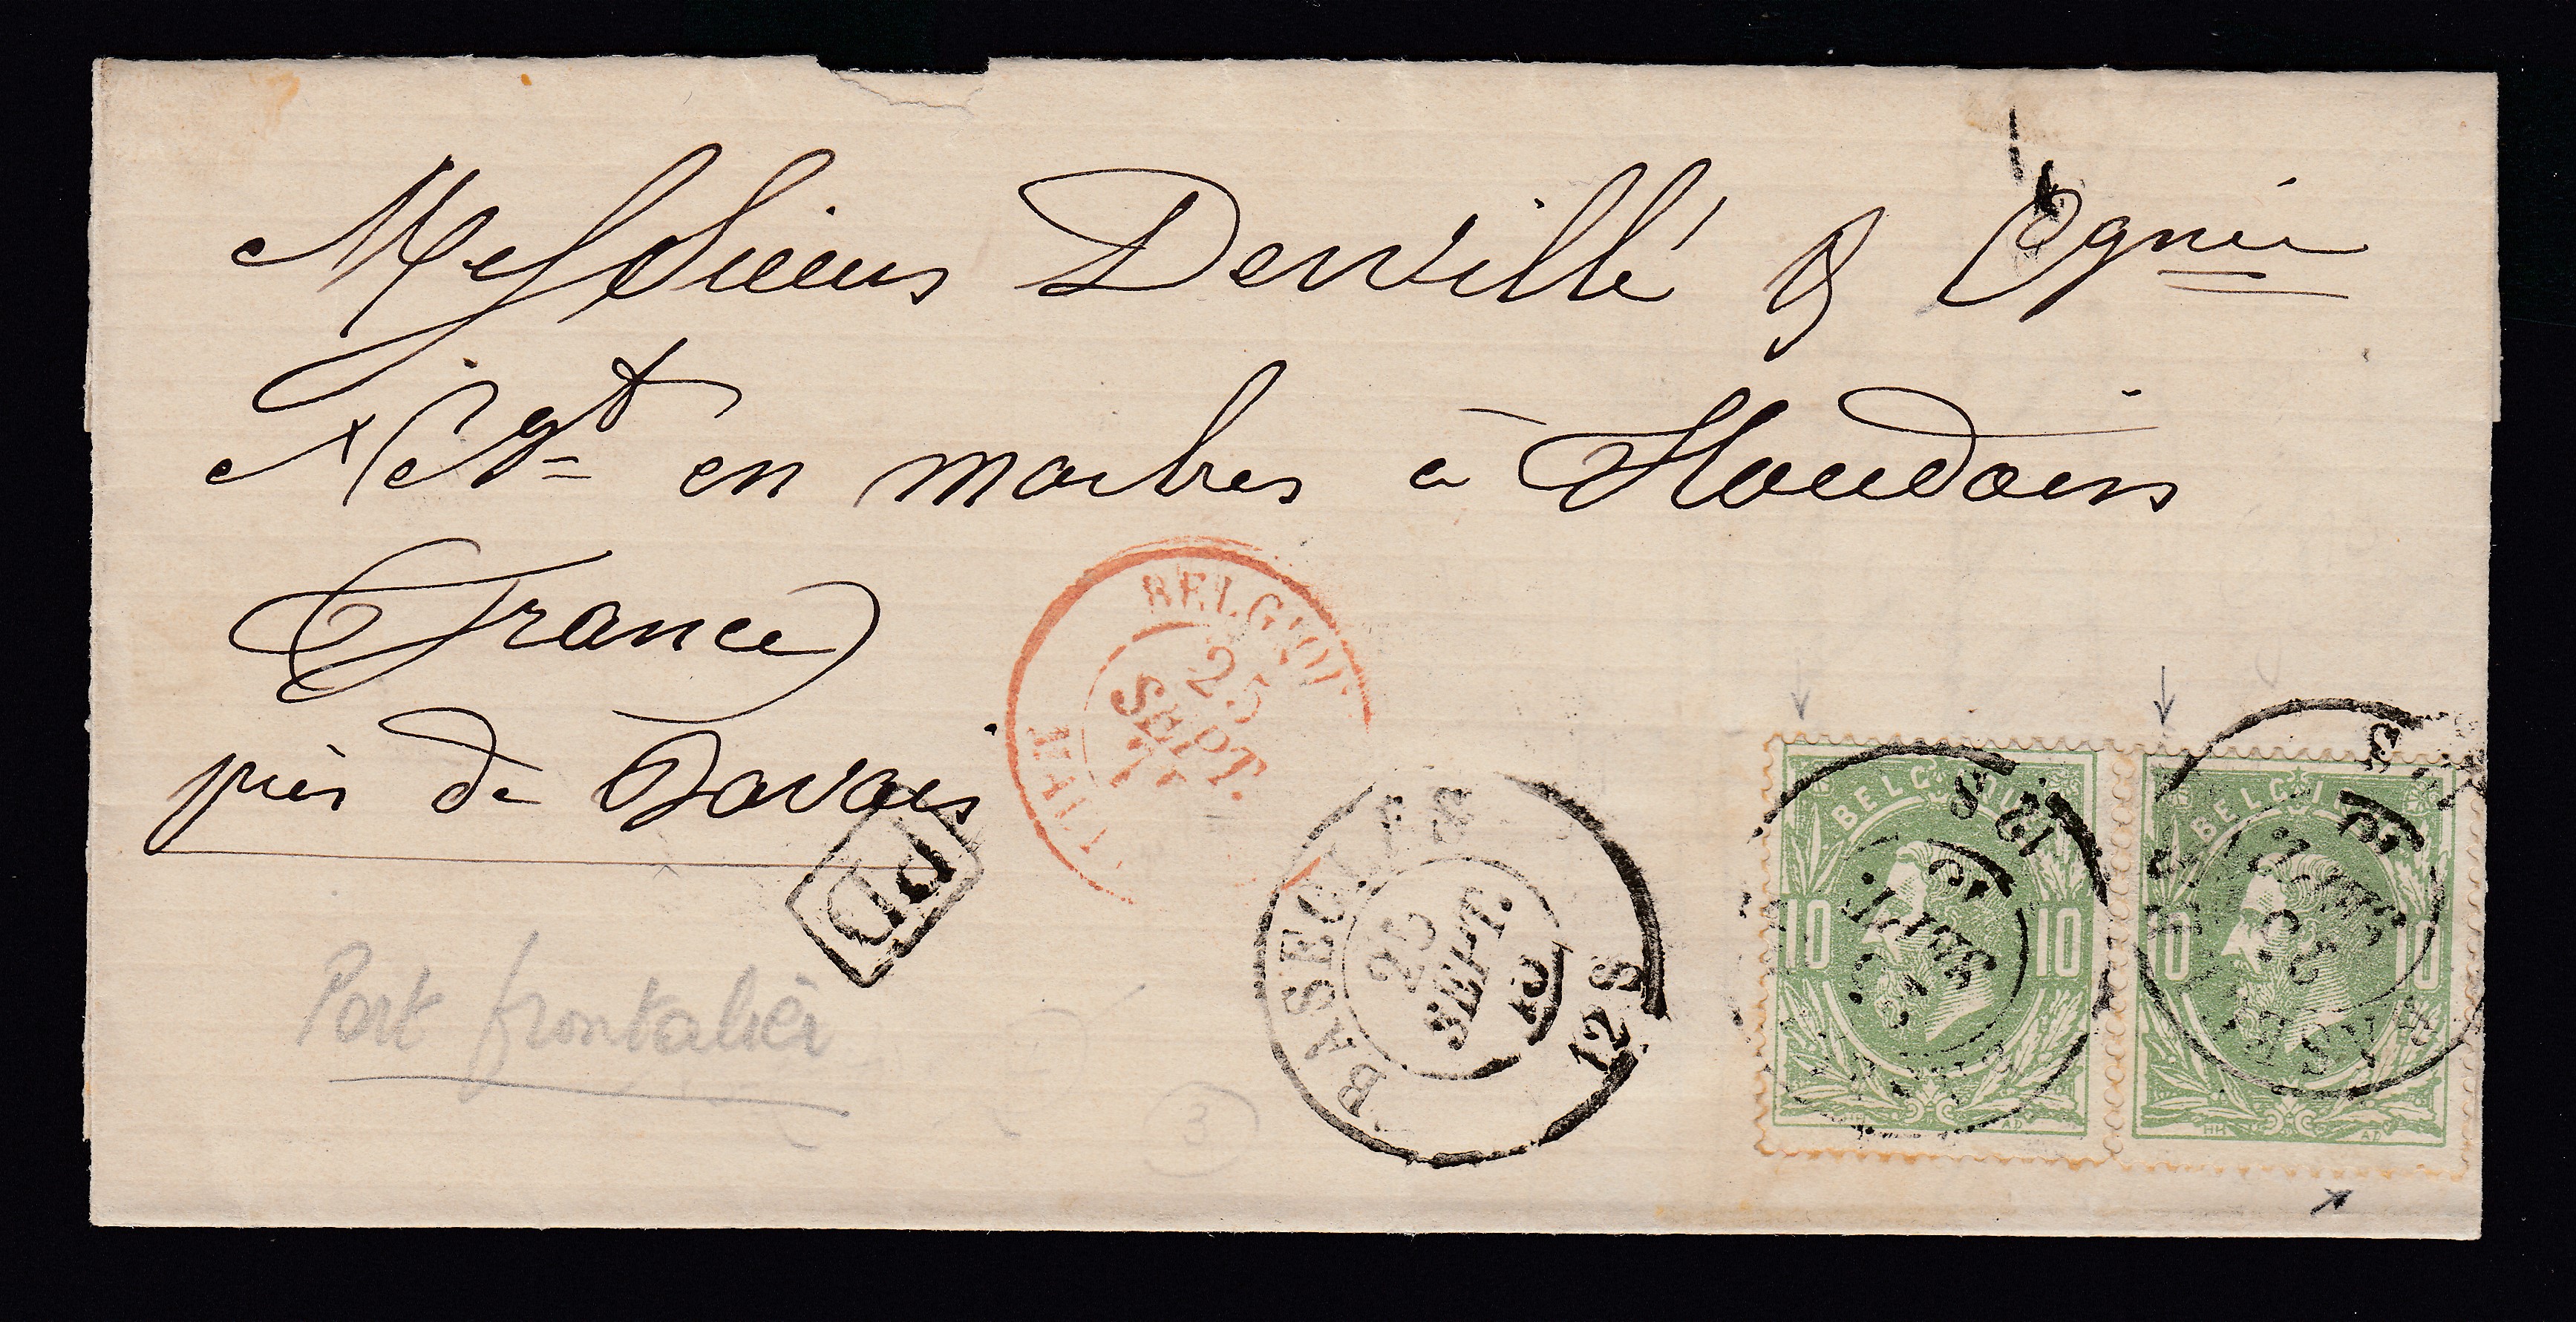 Messieurs Dervillé & Cgnie
Négt en marbres à Houdain
France
près de Bavais
BELGIQUE
25
SEPT.
PD
BASECLES
25
SEPT.
12 S
BELGIQUE
10 10
12 S
SEPT.
AD
BELGIQUE
10 10
25
SEPT.
HH AD
Port frontalier
3